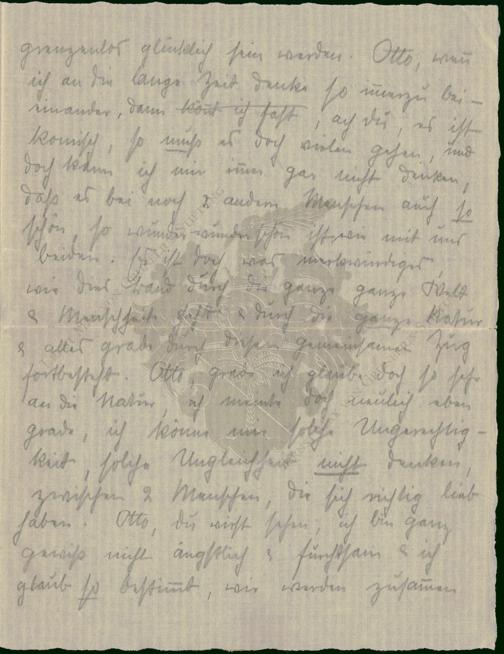 grenzenlos glücklich sein werden. Otto, wenn
ich an die lange Zeit denke so immerzu bei-
einander, dann ich fast, ach du, es ist
komisch, so muß es doch vielen gehen, und
doch kann ich mir immer gar nicht denken,
daß es bei noch 2 andern Menschen auch so
schön, so wunder-wunderschön ist wie mit uns
beiden. Es ist doch was merkwürdiges,
wie dies Band durch die ganze ganze Welt
& Menschheit geht & durch die ganze Natur
& alles grade durch diesen gemeinsamen Zug
fortbesteht. Otto, grade ich glaube doch so sehr
an die Natur, ich meinte doch neulich eben
grade, ich könne mir solche Ungerechtig-
keit, solche Ungleichheit nicht denken,
zwischen 2 Menschen, die sich richtig lieb
haben. Otto, du wirst sehen, ich bin ganz
gewiß nicht ängstlich & furchtsam & ich
glaub so bestimmt, wir werden zusammen